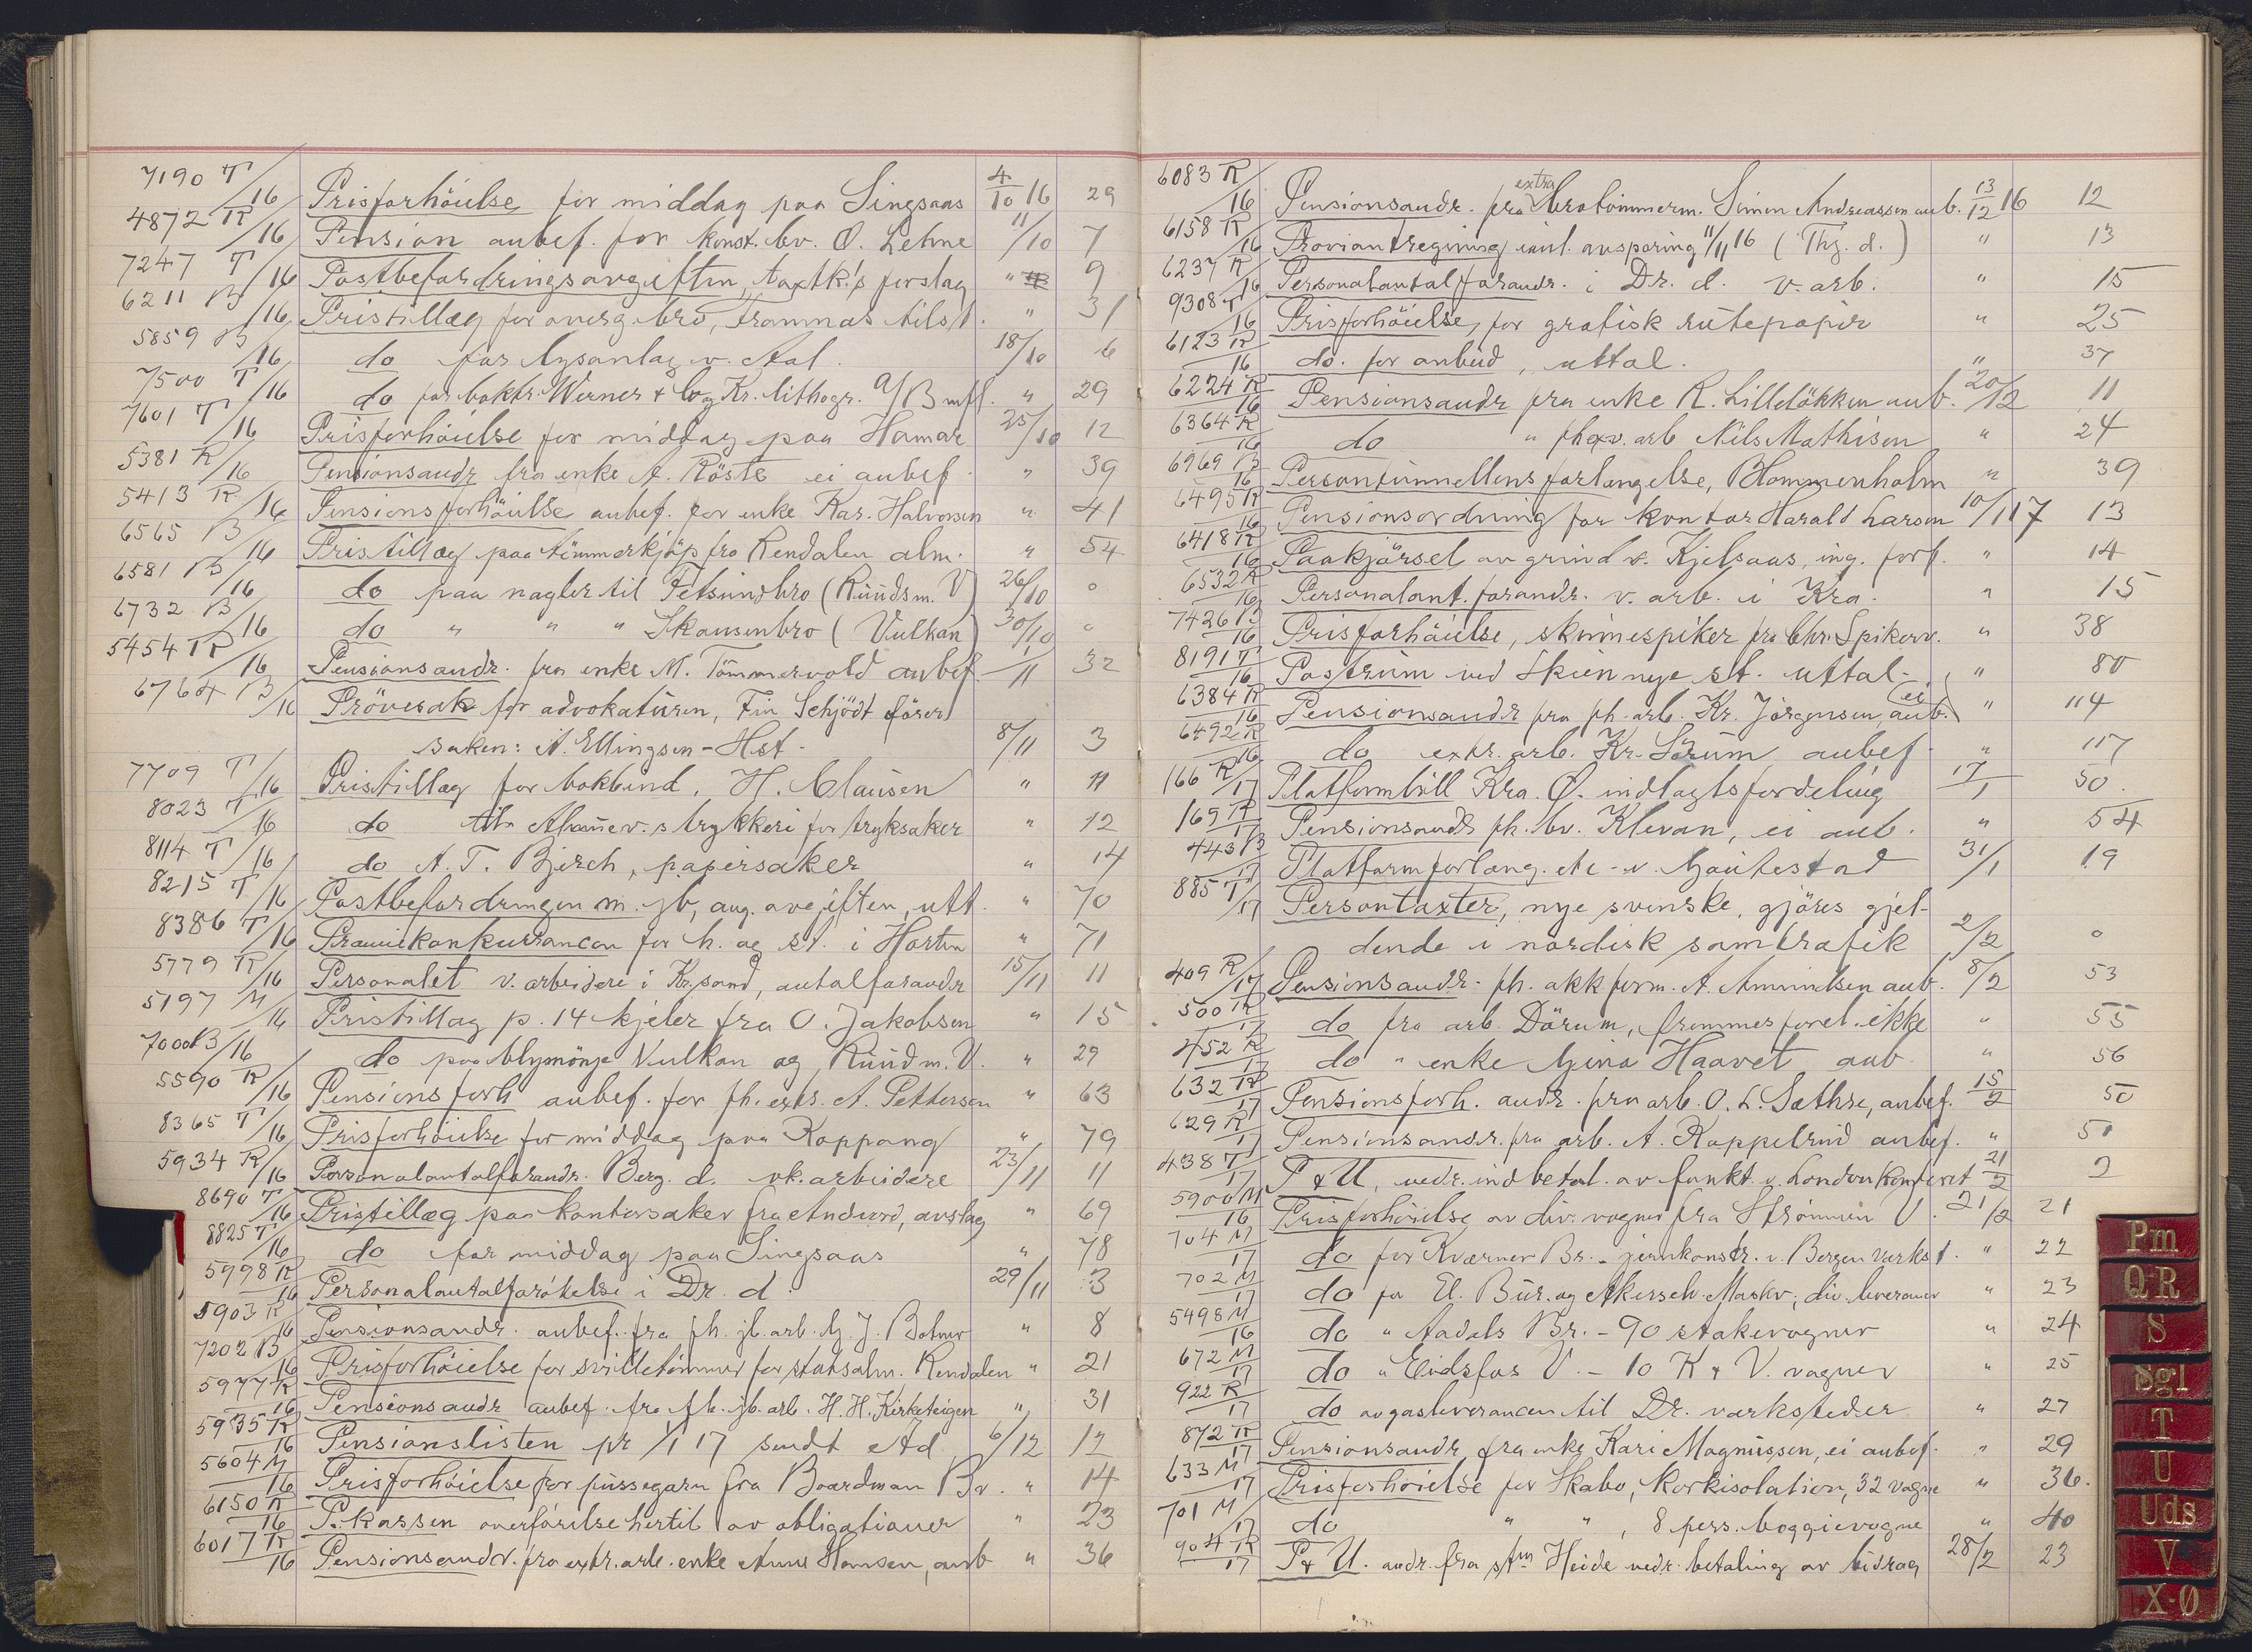 7190 T/16 Prisforhöielse for middag paa Singsaas 4/10 16 29
4872 R/16 Pension anbef. for konst. bv. O. Lehne 11/10 7
7247 T/16 Postbefordringsavgiften, taxtk's forslag " 9
6211 B/16 Pristillæg for overg. bro, Framnæs tilst. " 31
5859 B/16 do for lysanlæg v. Aal. 18/10 6
7500 T/16 do for boktr. Werner & Co og Kr. lithogr. A/B mfl. " 29
7601 T/16 Prisforhöielse for middag paa Hamar 25/10 12
5381 R/16 Pensionsandr fra enke A. Röste ei anbef. " 39
5413 R/16 Pensionsforhöielse anbef. for enke Kar. Halvorsen " 41
6565 B/16 Pristillæg paa tömmerkjöp fra Rendalen alm. " 54
6581 B/16 do paa nagler til Fetsundbro (Ruuds m. V) 26/10 0
6732 B/16 do " " " Skansenbro (Vulkan) 30/10 0
5454 R/16 Pensionsandr. fra enke M. Tömmervold anbef. 1/11 32
6764 B/16 Prövesak for advokaturen, Fin Schjödt förer
saken: A. Ellingsen - Hst. 8/11 3
7709 T/16 Pristillæg for bokbind. H. Clausen " 11
8023 T/16 do trykkeri for tryksaker " 12
8114 T/16 do A. T. Bjerch, papirsaker " 14
8215 T/16 Postbefordringen m. jb, ang. avgiften, utt. " 70
8386 T/16 Præmiekonkurrancen for h. og st. i Horten " 71
5779 R/16 Personalet v. arbeidere i Kr.sand, antalforandr 15/11 11
5197 M/16 Pristillæg p. 14 kjeler fra O. Jakobsen " 15
7000 B/16 do paa blymönje Vulkan og Ruud m. V. " 29
5590 R/16 Pensionsforh anbef. for fh. extr. A. Pettersen " 63
8365 T/16 Prisforhöielse for middag paa Koppang " 79
5934 R/16 Personalantalforandr. Berg. d. vk. arbeidere 23/11 11
8690 T/16 Pristillæg paa kontorsaker fra Andvord, avslag " 69
8825 T/16 do for middag paa Singsaas " 78
5998 R/16 Personalantalforökelse i Dr. d. 29/11 3
5903 R/16 Pensionsandr. anbef. fra fh. jb. arb. J. Bolner " 8
7202 B/16 Prisforhöielse for svilletömmer for statsalm. Rendalen " 21
5977 R/16 Pensionsandr anbef. fra fh. jb. arb. H. H. Kirketeigen " 31
5935 R/16 Pensionslisten pr 1/1 17 sendt Ad. 6/12 12
5604 M/16 Prisforhöielse for pussegarn fra Boardman Br. " 14
6150 R/16 P. kassen overförelse hertil av obligationer " 23
6017 R/16 Pensionsandr. fra extr. arb. enke Anne Hansen, anb " 36
6083 R/16 Pensionsandr. fra extra brotömmerm. Simen Andreassen anb. 13/12 16 12
6158 R/16 Proviantregning inkl. ansparing 11/11 16 (Thj. d.) " 13
6237 R/16 Personalantalforandr. i Dr. d. v. arb. " 15
9308 T/16 Prisforhöielse for grafisk rutepapir " 25
6123 R/16 do. for anbud, uttal. " 37
6224 R/16 Pensionsandr fra enke R. Lillelökken anb. 20/12 11
6364 R/16 do " fh. ex. v. arb Nils Mathisen " 24
6969 B/16 Persontunnellens forlængelse, Blommenholm " 39
6495 R/16 Pensionsordning for kontor Harald Larsen 10/1 17 13
6418 R/16 Paakjörsel av grind v. Kjelsaas, ing. forf. " 14
6532 R/16 Personalant. forandr. v. arb. i Kra. " 15
7426 B/16 Prisforhöielse, skinnespiker fra Chr. Spikerv. " 38
8191 T/16 Postrum ved Skien nye st. uttal. " 80
6384 R/16 Pensionsandr fra fh. arb. Kr. Jörgensen, ei anb. " 114
6492 R/16 do extr. arb. Kr. Sörum anbef " 117
166 R/17 Platformbill Kra. Ö. indtægtsfordeling 17/1 50.
169 R/17 Pensionsandr fh. bv. Klevan, ei anb. " 54
443 B/17 Platformforlæng. etc. v. Gautestad 31/1 19
885 T/17 Persontaxter, nye svenske, gjöres gjel-
dende i nordisk samtrafik 2/2 0
409 R/17 Pensionsandr. fh. akk form. A. Amundsen anb. 8/2 53
500 R/17 do fra arb. Dörum, fremmes forel. ikke " 55
452 R/17 do " enke Gina Haavet anb. " 56
632 R/17 Pensionsforh. andr. fra arb. O. L. Sæthre, anbef. 15/2 50
629 R/17 Pensionsandr. fra arb. A. Kappelrud anbef. " 51
438 T/17 P & U, vedr. indbetal. av funkt. v. Londonkontoret 21/2 2
5900 M/16 Prisforhöielse av div. vogner fra Strömmen V. 21/2 21
704 M/17 do for Kværner Br. - jernkonstr. v. Bergen verkst. " 22
702 M/17 do for El. Bur. og Akersch Maskv; div. leverancer " 23
5498 M/16 do " Aadals Br. - 90 stakevogner " 24
672 M/17 do " Eidsfos V. - 10 K & V. vogner " 25
922 R/17 do av gasleverancen til Dr. verksteder " 27
872 R/17 Pensionsandr. fra enke Kari Magnussen, ei anbef. " 29
633 M/17 Prisforhöielse for Skabo, korkisolation, 32 vogne " 36.
701 M/17 do " " , 8 pers. boggievogne " 40
904 R/17 P & U. andr. fra stm Heide vedr. betaling av bidrag 28/2 23
Pm
Q-R
S
Sgl
T
U
Uds
V
X-Ø